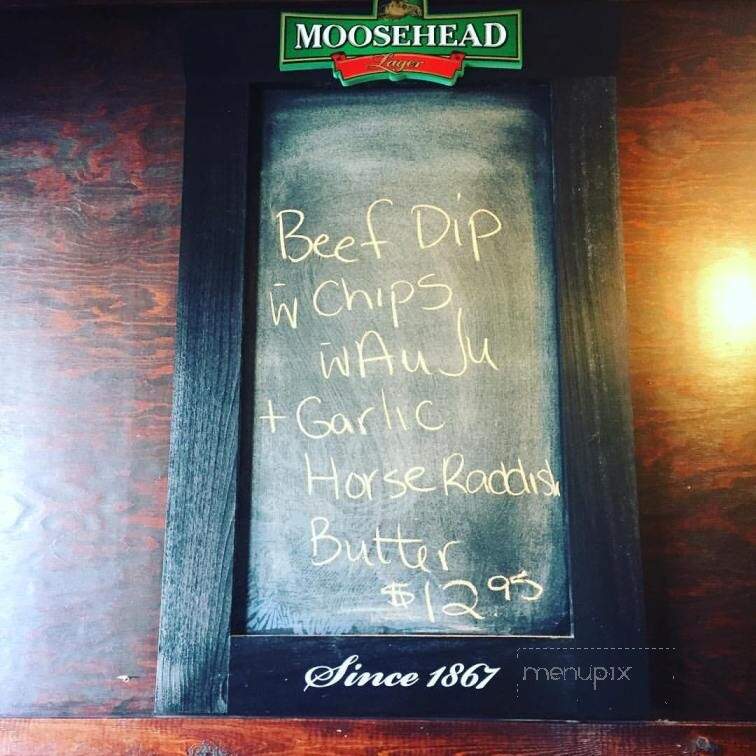 MOOSEHEAD
Lager
Beef Dip
w Chips
w Au Ju
+ Garlic
Horse Raddish
Butter
$12.95
Since 1867
menupix